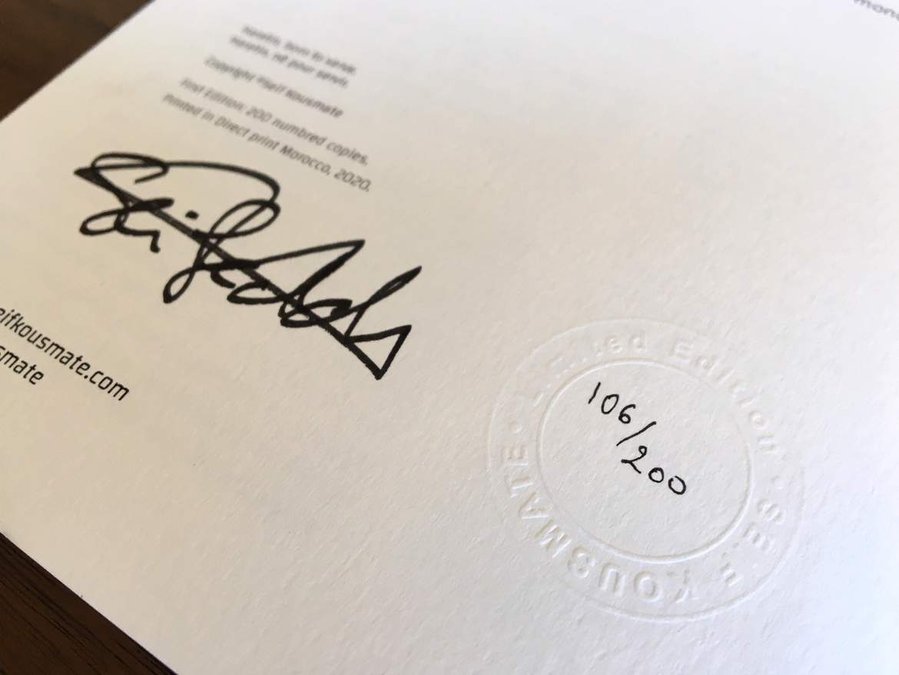 haratin, born to serve.
haratin, né pour servir.
Copyright ©seif Kousmate
First Edition: 200 numbred copies.
Printed in Direct print Morocco, 2020.
eifkousmate.com
smate
Limited Edition • SEIF KOUSMATE •
106/200